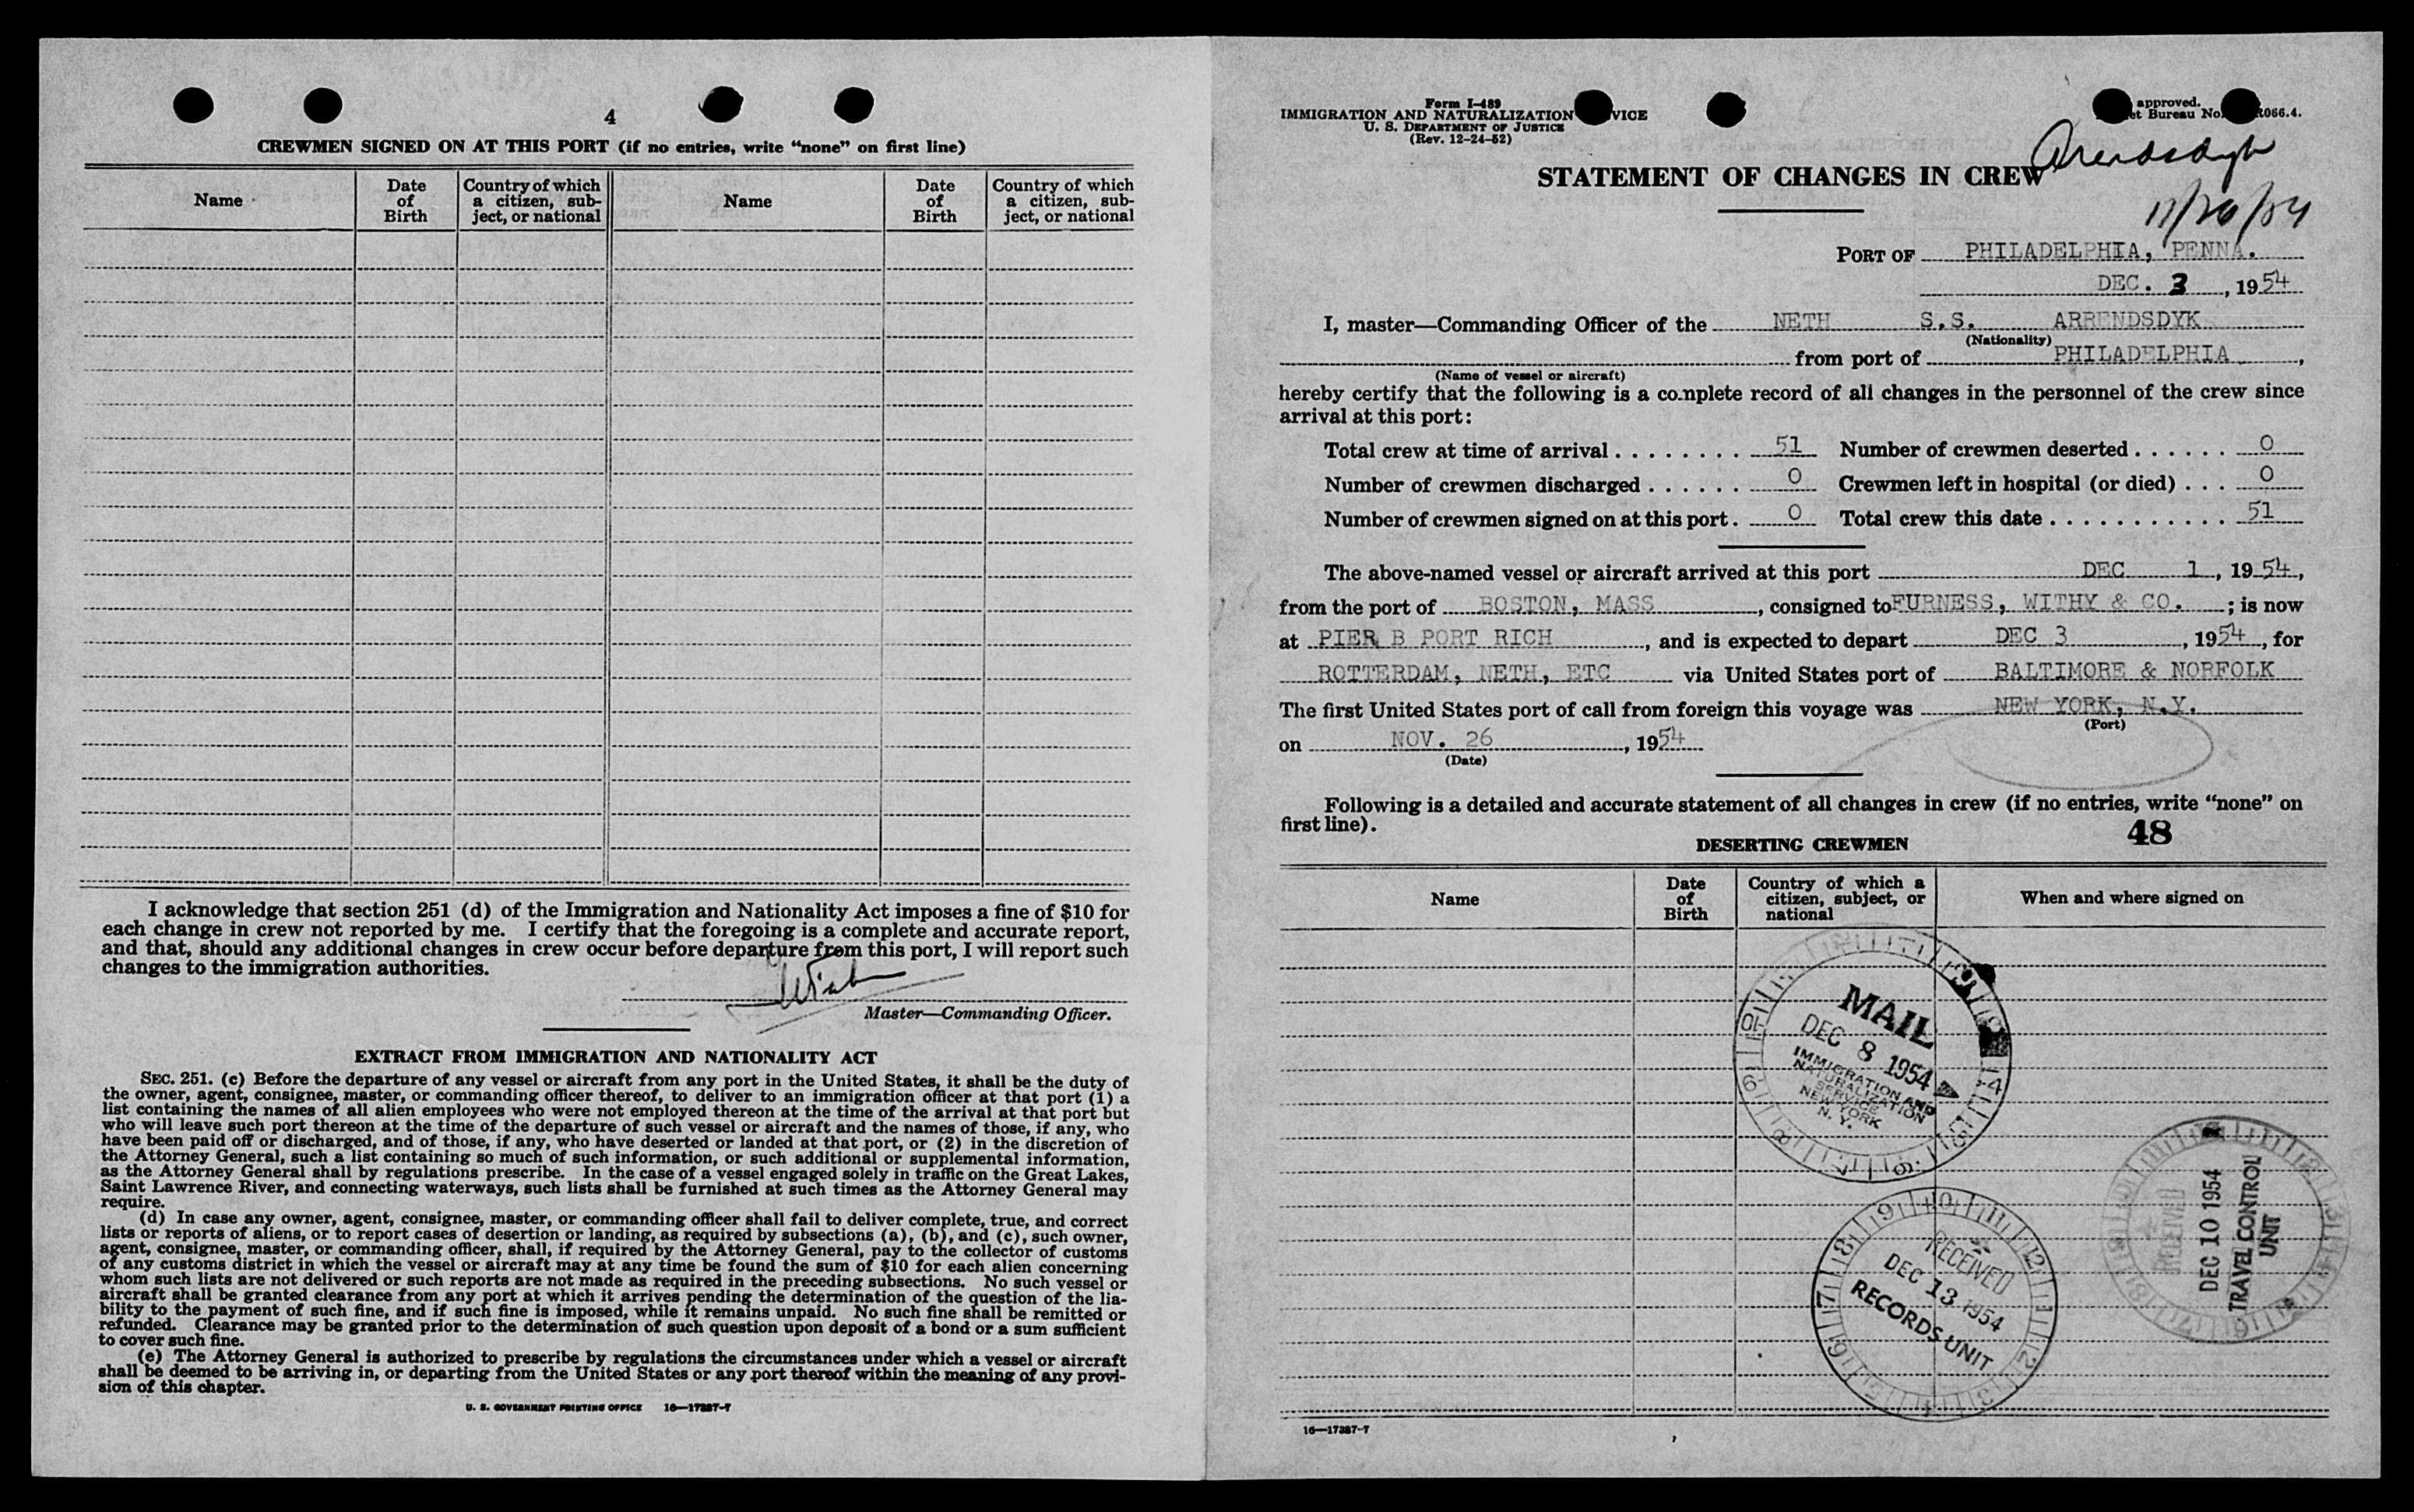 4
CREWMEN SIGNED ON AT THIS PORT (if no entries, write “none” on first line)
Name
Date of Birth
Country of which a citizen, sub-ject, or national
Name
Date of Birth
Country of which a citizen, sub-ject, or national
I acknowledge that section 251 (d) of the Immigration and Nationality Act imposes a fine of $10 for
each change in crew not reported by me. I certify that the foregoing is a complete and accurate report,
and that, should any additional changes in crew occur before departure from this port, I will report such
changes to the immigration authorities.
Master—Commanding Officer.
EXTRACT FROM IMMIGRATION AND NATIONALITY ACT
SEC. 251. (c) Before the departure of any vessel or aircraft from any port in the United States, it shall be the duty of
the owner, agent, consignee, master, or commanding officer thereof, to deliver to an immigration officer at that port (1) a
list containing the names of all alien employees who were not employed thereon at the time of the arrival at that port but
who will leave such port thereon at the time of the departure of such vessel or aircraft and the names of those, if any, who
have been paid off or discharged, and of those, if any, who have deserted or landed at that port, or (2) in the discretion of
the Attorney General, such a list containing so much of such information, or such additional or supplemental information,
as the Attorney General shall by regulations prescribe. In the case of a vessel engaged solely in traffic on the Great Lakes,
Saint Lawrence River, and connecting waterways, such lists shall be furnished at such times as the Attorney General may
require.
(d) In case any owner, agent, consignee, master, or commanding officer shall fail to deliver complete, true, and correct
lists or reports of aliens, or to report cases of desertion or landing, as required by subsections (a), (b), and (c), such owner,
agent, consignee, master, or commanding officer, shall, if required by the Attorney General, pay to the collector of customs
of any customs district in which the vessel or aircraft may at any time be found the sum of $10 for each alien concerning
whom such lists are not delivered or such reports are not made as required in the preceding subsections. No such vessel or
aircraft shall be granted clearance from any port at which it arrives pending the determination of the question of the lia-
bility to the payment of such fine, and if such fine is imposed, while it remains unpaid. No such fine shall be remitted or
refunded. Clearance may be granted prior to the determination of such question upon deposit of a bond or a sum sufficient
to cover such fine.
(e) The Attorney General is authorized to prescribe by regulations the circumstances under which a vessel or aircraft
shall be deemed to be arriving in, or departing from the United States or any port thereof within the meaning of any provi-
sion of this chapter.
U. S. GOVERNMENT PRINTING OFFICE 16—17387-7
Form I-489
IMMIGRATION AND NATURALIZATION VICE
U. S. DEPARTMENT OF JUSTICE
(Rev. 12-24-52)
approved.
et Bureau No. R066.4.
Arendsdyk
STATEMENT OF CHANGES IN CREW
11/26/54
PORT OF PHILADELPHIA, PENNA.
DEC. 3, 1954
I, master—Commanding Officer of the NETH S.S. ARRENDSDYK
(Nationality)
from port of PHILADELPHIA,
(Name of vessel or aircraft)
hereby certify that the following is a complete record of all changes in the personnel of the crew since
arrival at this port:
Total crew at time of arrival 51 Number of crewmen deserted 0
Number of crewmen discharged 0 Crewmen left in hospital (or died) 0
Number of crewmen signed on at this port 0 Total crew this date 51
The above-named vessel or aircraft arrived at this port DEC 1, 1954,
from the port of BOSTON, MASS, consigned to FURNESS, WITHY & CO.; is now
at PIER B PORT RICH, and is expected to depart DEC 3, 1954, for
ROTTERDAM, NETH, ETC via United States port of BALTIMORE & NORFOLK
The first United States port of call from foreign this voyage was NEW YORK, N.Y.
(Port)
on NOV. 26, 1954
(Date)
Following is a detailed and accurate statement of all changes in crew (if no entries, write “none” on
first line).
48
DESERTING CREWMEN
Name
Date of Birth
Country of which a citizen, subject, or national
When and where signed on
MAIL
DEC 8 1954
IMMIGRATION AND
NATURALIZATION
SERVICE
NEW YORK
N. Y.
RECEIVED
DEC 10 1954
TRAVEL CONTROL
UNIT
RECEIVED
DEC 13 1954
RECORDS UNIT
16—17387-7